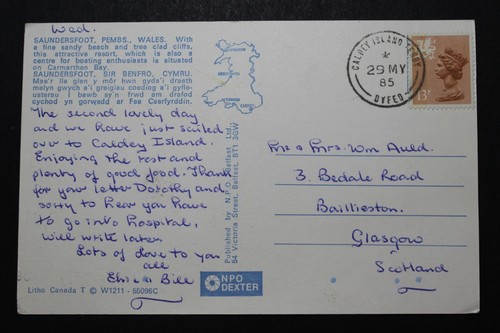 Wed.
SAUNDERSFOOT, PEMBS., WALES. With
a fine sandy beach and tree clad cliffs,
this attractive resort, which is also a
centre for boating enthusiasts is situated
on Carmarthen Bay.
SAUNDERSFOOT, SIR BENFRO, CYMRU.
Mae'r lle glan y môr hwn gyda'i draeth
melyn gwych a'i greigiau coediog a'i gyfle-
usterau i bawb sy'n hwylio am drafod
cychod yn gorwedd ar Fae Caerfyrddin.
The second lovely day
and we have just sailed
over to Caldey Island.
Enjoying the rest and
plenty of good food. Thank
for your letter Dorothy and
sorry to hear you have
to go into hospital,
will write later
Lots of love to you
all
Elsie & Bill
Litho Canada T © W1211 - 56096C
Published by N.P.O. Belfast Ltd.
54 Victoria Street, Belfast, BT1 3GW
NPO
DEXTER
CALDEY ISLAND TENBY
29 MY
85
DYFED
13P
Mr & Mrs. Wm Auld.
3. Bedale Road
Baillieston.
Glasgow
Scotland